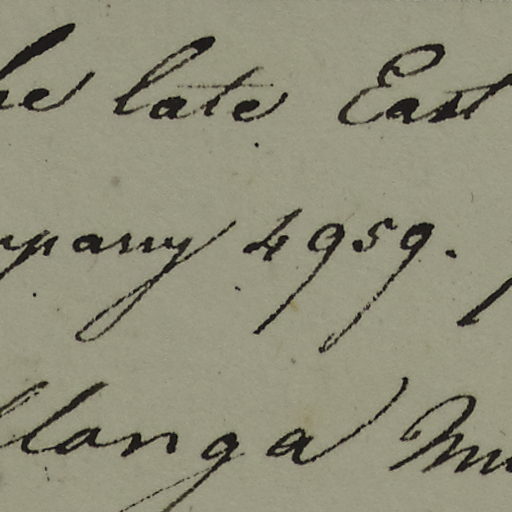 he late East
mpany 4959.
llanga